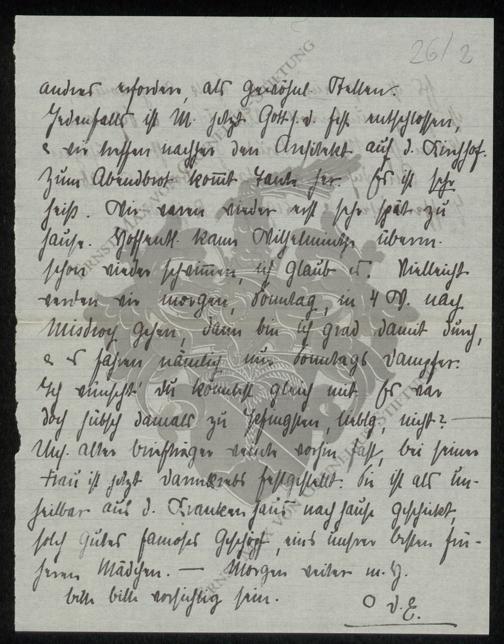 26/2
andres erfordere, als gewöhnl. Stellen.
Jedenfalls ist M. jetzt Gott s. d. fest entschlossen,
& wir treffen nachher den Architekt auf d. Kirchhof.
Zum Abendbrot kommt Tante her. Es ist sehr
heiß. Wir waren wieder erst sehr spät zu
Hause. Hoffentl. kann Wilhelmmutze überm.
schon wieder schwimmen, ich glaub es. Vielleicht
werden wir morgen, Sonntag, in 4 W. nach
Misdroy gehen, dann bin ich grad damit durch,
& es fahren nämlich nur Sonntags Dampfer.
Ich wünscht' du könntest gleich mit. Es war
doch hübsch damals zu Pfingsten, Liblg, nicht? —
Uns. alter Briefträger weinte vorhin fast, bei seiner
Frau ist jetzt Darmkrebs festgestellt. Sie ist als un-
heilbar aus d. Krankenhaus nach Hause geschickt,
solch gutes famoses Geschöpf, eins unsrer besten frü-
heren Mädchen. — Morgen weiter m. H.
bitte bitte vorsichtig sein.
O d. E.
ERNST FELIX VON OERNELIUS-STIFTUNG